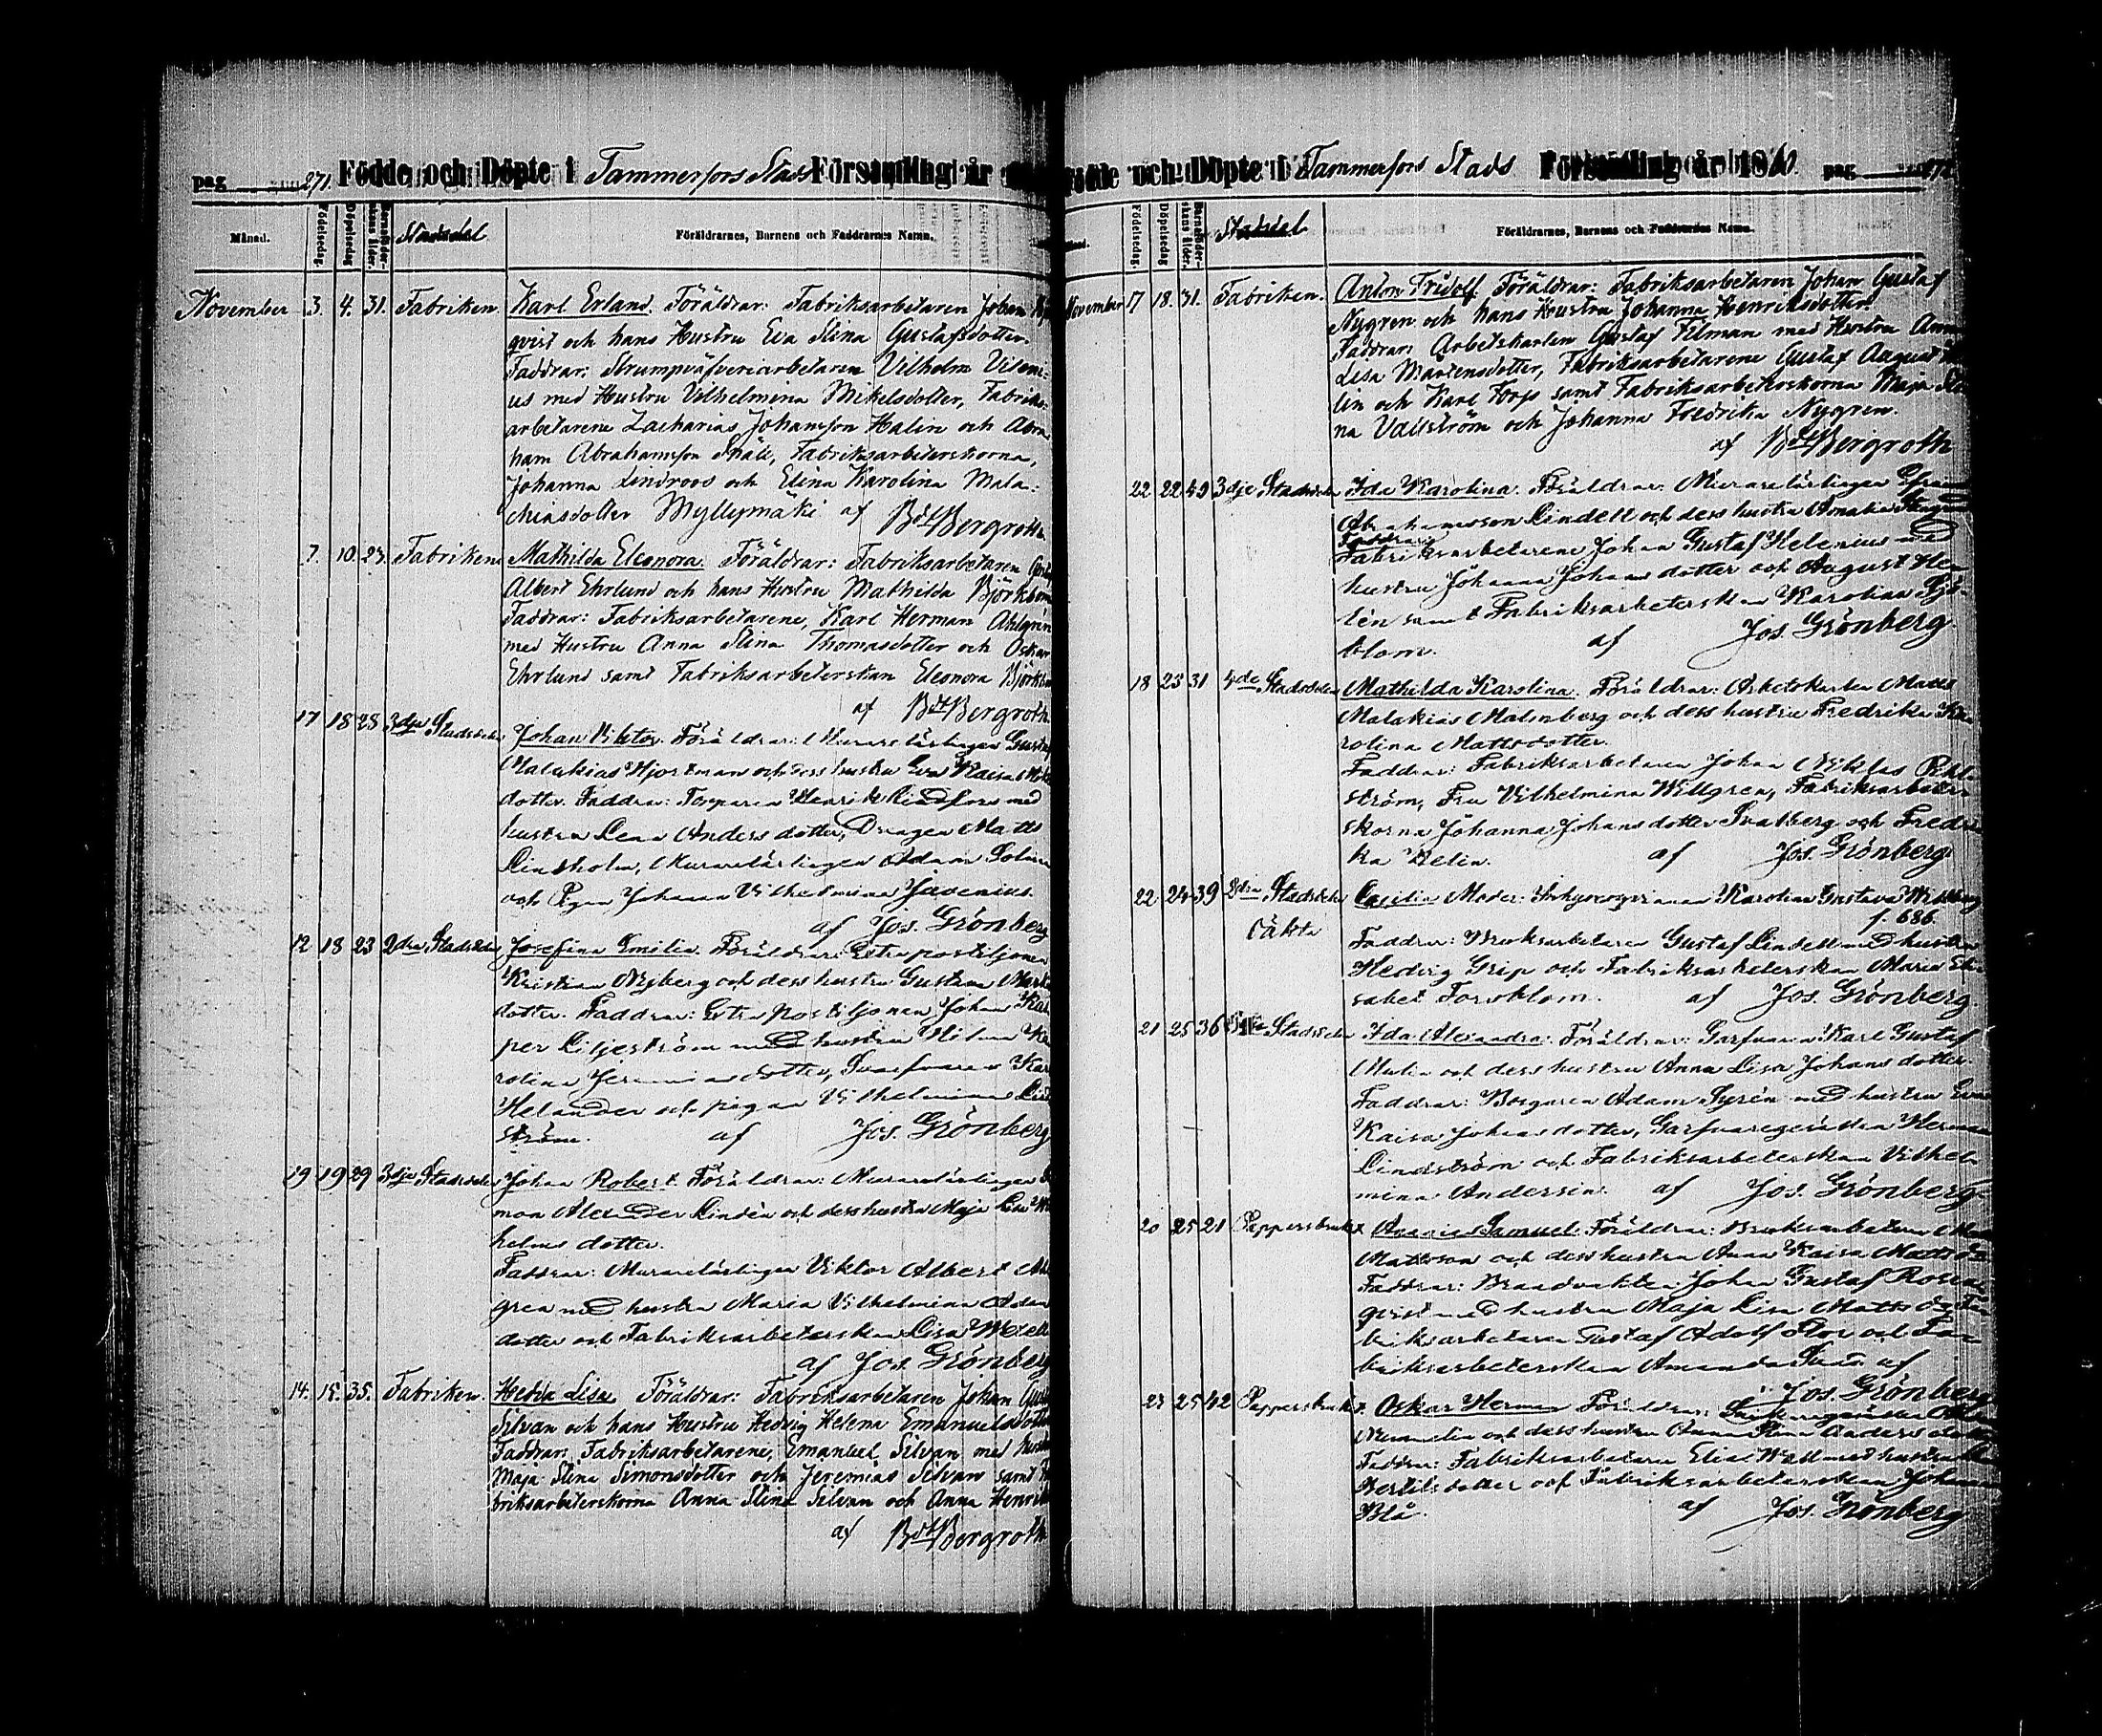 pag 271. Födde och Döpte i Tammerfors Stads Församling år
Månad. Födelsedag. Döpelsedag. Barnaföderskans ålder. Stadsdel Föräldrarnes, Barnens och Faddrarnes Namn.
November 3. 4. 31. Fabriken. Karl Erland. Föräldrar: Fabriksarbetaren Johan
qvist och hans Hustru Eva Stina Gustafsdotter.
Faddrar: Strumpväfveriarbetaren Vilhelm Vileni:
us med Hustru Vilhelmina Mikelsdotter, Fabriks:
arbetarene Zacharias Johansson Halin och Abra
ham Abrahamsson Skäli, Fabriksarbeterskorna,
Johanna Lindroos och Elina Karolina Mala:
chiasdotter Myllymäki af Bdt Bergroth
7. 10. 23. Fabriken Mathilda Eleonora. Föräldrar: Fabriksarbetaren
Albert Ehrlund och hans Hustru Mathilda Björkbom
Faddrar: Fabriksarbetarene, Karl Herman Ahlgren
med Hustru Anna Stina Thomasdotter och Oskar
Ehrlund samt Fabriksarbeterskan Eleonora Björkbom
af Bdt Bergroth.
17 18 23 3dje Stadsdelen Johan Viktor. Föräldrar: Murarelärlingen Gustaf
Malakias Hjortman och dess hustru Eva Kaisa
dotter. Faddrar: Torparen Henrik Lindfors med
hustru Lena Andersdotter, Drengen Matts
Lindholm, Murarelärlingen Adam Solin
och Pigan Johanna Vilhelmina Javenius.
af Jos. Grönberg
12 18 23 2dra Stadsdelen Josefina Emilia. Föräldrar: Extra postiljonen
Kristian Nyberg och dess hustru Gustava
dotter. Faddrar: Extra postiljonen Johan Kas
per Liljeström med hustru Hilma Ka
rolina Jeremiasdotter, Svarfvaren Karl
Helander och pigan Vilhelmina Lind
ström. af Jos. Grönberg
19 19 29 3dje Stadsdelen Johan Robert. Föräldrar: Murarelärlingen
mon Alexander Lindén och dess hustru Maja Lisa
helmsdotter.
Faddrar: Murarelärlingen Viktor Albert
gren med hustru Maria Vilhelmina Adams
dotter och Fabriksarbeterskan Lisa
af Jos. Grönberg
14. 15. 35. Fabriken. Hedda Lisa Föräldrar: Fabriksarbetaren Johan
Silvan och hans Hustru Hedvig Helena Emanuelsdotter
Faddrar: Fabriksarbetarene, Emanuel Silvan med hustru
Maja Stina Simonsdotter och Jeremias Silvan samt Fa
briksarbeterskorna Anna Stina Silvan och Anna
af Bdt Bergroth
och Döpte i Tammerfors Stads Församling år 18 pag 272
Födelsedag. Döpelsedag Barnaföderskans ålder. Stadsdel Föräldrarnes, Barnens och Faddrarnes Namn.
November 17 18. 31. Fabriken. Anton Fridolf Föräldrar: Fabriksarbetaren Johan Gustaf
Nygren och hans Hustru Johanna Henriksdotter.
Faddrar: Arbetskarlen Gustaf Filman med Hustru Anna
Lisa Mårtensdotter, Fabriksarbetarene Gustaf August
lin och Karl Torp samt Fabriksarbeterskorna Maja Sti
na Vallström och Johanna Fredrika Nygren.
af Bdt Bergroth
22 22 49 3dje Stadsdelen Ida Karolina. Föräldrar: Murarelärlingen Efraim
Abrahamsson Lindell och dess hustru Amalia
Faddrar:
Fabriksarbetarene Johan Gustaf Helenius med
hustru Johanna Johansdotter och August He
lén samt Fabriksarbeterskan Karolina Sjö
blom. af Jos. Grönberg.
18 23 31 4de Stadsdelen Mathilda Karolina. Föräldrar: Arbetskarlen Matts
Malakias Malmberg och dess hustru Fredrika Ka
rolina Mattsdotter.
Faddrar: Fabriksarbetaren Johan Niklas
ström, Fru Vilhelmina Willgren, Fabriksarbeter
skorna Johanna Johansdotter Svalberg och Fredri
ka Helin. af Jos. Grönberg
22 24 39 2dra Stadsdelen Cecilia Moder: Inhysespigan Karolina Gustava
f. 686.
oäkta Faddrar: Bruksarbetaren Gustaf Lindell med hustru
Hedvig Grip och Fabriksarbeterskan Maria Eli
sabet Forsblom. af Jos. Grönberg.
21 25 36 Stadsdelen Ida Alexandra. Föräldrar: Garfvaren Karl Gustaf
Malin och dess hustru Anna Lisa Johansdotter.
Faddrar: Borgaren Adam Syrén med hustru Eva
Kaisa Johansdotter, Garfvaregesällen Herman
Lindström och Fabriksarbeterskan Vilhel
mina Andersin. af Jos. Grönberg
20 25 21 Pappersbruket Samuel. Föräldrar: Bruksarbetaren
Mattsson och dess hustru Anna Kaisa Mattsdr
Faddrar: Brandvakten Johan Gustaf Rosen
qvist med hustru Maja Lisa Mattsdr, Fa
briksarbetaren Gustaf Adolf Flor och Fa
briksarbeterskan Amanda af
Jos. Grönberg
23 25 42 Pappersbruket. Oskar Herman Föräldrar:
och dess hustru Anna Stina Andersdotter
Faddrar: Fabriksarbetaren Elias Wall med hustru
Bertilsdotter och Fabriksarbeterskan Johanna
Blå. af Jos. Grönberg